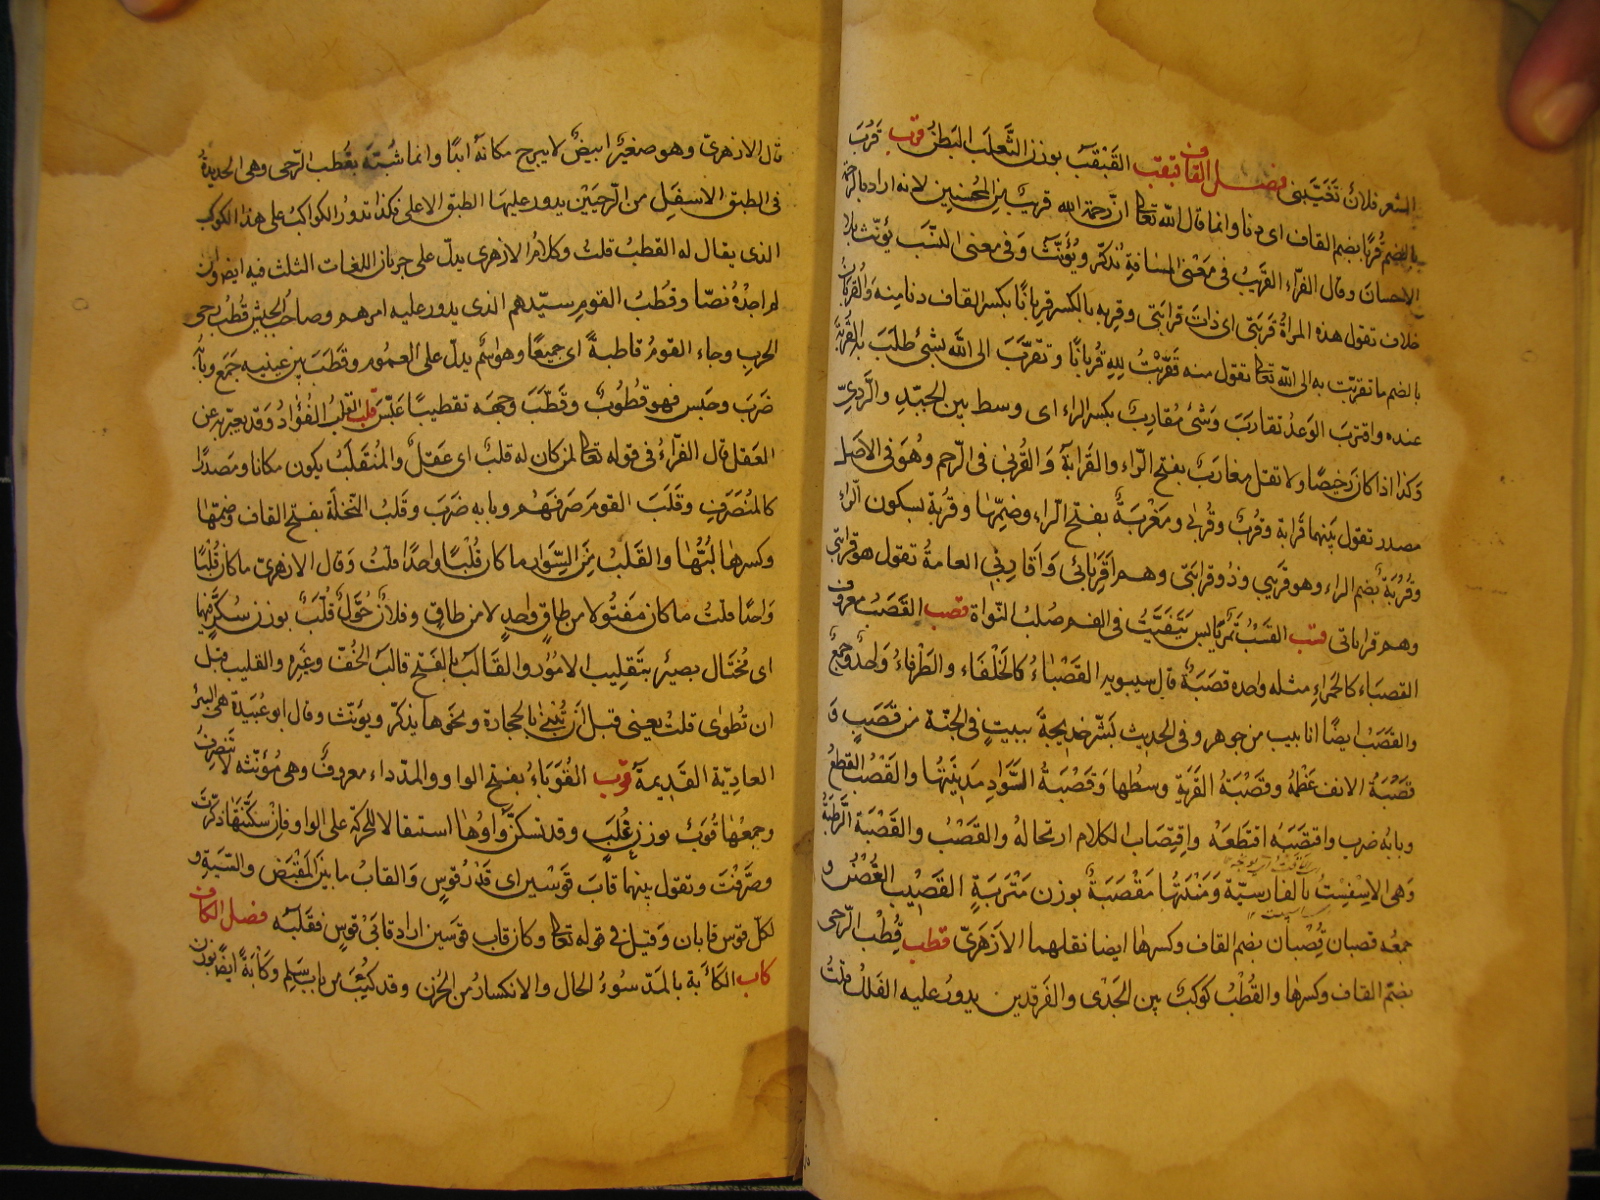 الشعر فلان تغيبني فصل القاف قبقب القَبْقَبُ بوزن الثَّعلَب البَطنُ قرب قَرُبَ
بالضم قُربًا بضم القاف اى دنا وانما قال الله تعالى انّ رحمة الله قريبٌ من المحسنين لانه اراد بالرحمة
الاحسان وقال الفرّاء القريبُ فى معنى المسافة يُذكّر ويُؤنّث وفى معنى النسَب يؤنّث بلا
خلاف تقول هذه المرأةُ قَرِيبَتى اى ذات قرابتى وقربه بالكسر قِربانًا بكسر القاف دنا منه والقُربانُ
بالضم ما تقرّبت به الى الله تعالى تقول منه قَرَّبْتُ لِلّهِ قُربانًا وتقرّبَ الى الله بشئ طلَبَ به القُربةَ
عنده واقترب الوَعدُ تقاربَ وشئ مُقارِبٌ بكسر الراء اى وسط بين الجيّدِ والرَّدِىِّ
وكذا اذا كان رَخيصًا ولا تقل مقاربٌ بفتح الراء والقَرابة والقُربى فى الرّحم وهُوَ فى الاصل
مصدر تقول بينهما قَرابة وقُربٌ وقُربى ومَقْرَبَةٌ بفتح الراء وضمّها وقُرْبة بسكون الراء
وقُرُبَة بضم الراء وهو قريبى وذُو قرابتى وهم اَقرِبائى واَقاربى العامةُ تقول هو قرابتى
وهم قراباتى قسب القَسْبُ تَمْرٌ يابس يتفتّتُ فى الفم صُلبُ النّواة قصب القَصَبُ معروف
القصباء كالحمراءِ مثله واحده قصَبَةٌ قال سيبويه القَصْباءُ كالحَلْفَاء والطَّرْفاءُ واحدٌ وجمعٌ
والقَصَبُ ايضًا انابيب من جوهر وفى الحديث بَشّر خديجةَ ببيتٍ فى الجنّة من قَصَبٍ وَ
قَصَبَةُ الانف عَظمُه وقَصَبَةُ القَريةِ وسطُها وَقَصَبَةُ السَّوَادِ مَدِينَتُها والقَصْبُ القطعُ
وبابُه ضرب واقتصَبَه اقتطَعَه واقتِصَاب الكلام ارتجالهُ والقَصْبُ والقَصْبَة الرَّطبَةُ
وَهى الاِسفِستُ بالفارسيّة وَمَنبتُها مَقْصَبَةٌ بوزن مَتْرَبَةٍ القَصيب الغُصْنُ و
جمعُه قِصبان قُصْبان بضم القاف وكسرها ايضا نقلهما الازهَرىّ قطب قُطْب الرّحى
بضمّ القاف وكسرها والقُطْبُ كوكبٌ بين الجَدْى والفَرقدين يدورُ عليه الفَلكُ قلتُ
قال الازهرىّ وهو صغيرٌ ابيضُ لا يبرح مكانه ابدًا وانما شُبّهَ بقُطب الرّحى وهى الحديدةُ
فى الطبق الاسفَلِ من الرّحَيَيْن يدور عليها الطبق الاعلى فكذا تدورُ الكواكبُ على هذا الكوكب
الذى يقال له القطبُ قلتُ وكلامُ الازهرى يدلّ على جريان اللغات الثلث فيه ايضا وان
لم اجدْهُ نصّا وقُطبُ القومِ سيّدهم الذى يدور عليه امرهم وصاحبُ الجيشِ قُطبُ رحى
الحربِ وجاء القومُ قاطبةً اى جميعًا وهو اسمٌ يدلّ على العمُوم وقَطَبَ بين عينيه جَمَع وبابُه
ضَرَبَ وجلس فهو قُطُوبٌ وقَطَّبَ وجهَه تقطيبًا عَبَّسَ قلب القلبُ الفُؤادُ وقد يعبّر به عن
العقل قال الفرّاءُ فى قوله تعالى لمن كان له قلبٌ اى عَقلٌ والمُنقَلَبُ يكون مكانا ومَصدرًا
كالمُنصَرَف وقَلَبَ القومَ صَرفَهُم وبابه ضَرَبَ وقَلبُ النّخلَة بفتح القاف وضمّها
وكسرها لُبُّها والقَلبُ مِنَ السِّوارِ ما كان قُلْبًا واحدًا قلتُ وقال الازهرىّ ما كان قُلْبًا
واحدًا قلتُ ما كان مَفتُولا من طاقٍ واحدٍ لا من طاقينِ وفلانٌ حُوَّلٌ قُلَّبٌ بوزن سُكّرٍ فيهما
اى مُحتَال بصيرٌ بتقليب الامُور والقَالَب بالفتح قالَبُ الخُفّ وغيرِه والقليب قبل
ان تُطوى قلتُ يعنى قبل اَن تُبنىٰ بالحجارة ونحوها يذكّر ويؤنّث وقال ابو عُبَيدة هى البئر
العاديّة القَديمة قوب القُوَباءُ بفتح الواو والمدّ داء معروفٌ وهى مُؤنّثه لا تَنصرفُ
وجمعُها قُوَبٌ بوزن عُلَبٍ وقد تسكنُ وَاوُها استثقالا للحركة على الواو فانْ سكّنتَها ذكّرتَ
وصَرّفتَ وتقول بينهما قابَ قَوْسين اى قَدْر قوسٍ والقابُ ما بين المَقبَض والسّيَةِ و
لكلّ قوس قابان وَقيلَ فى قوله تعالى وكان قاب قوسين اراد قابَىْ قوسٍ فقلبَه فصل الكاف
كاب الكآبة بالمدّ سُوءُ الحال والانكسارُ من الحُزن وقد كئِبَ من باب سَلِم وكآبةً ايضًا بوزن